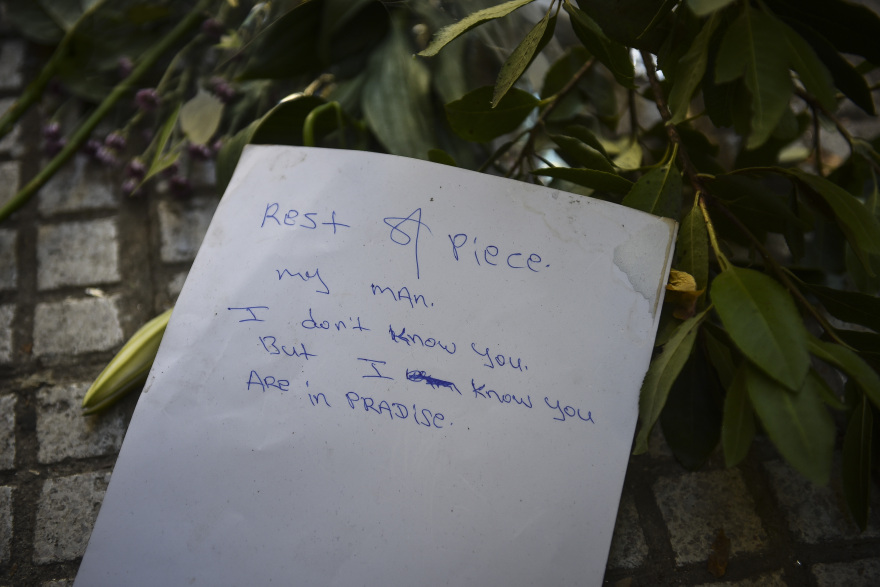 Rest & Piece.
my MAN.
I don't know you.
But I know you
ARe in PRADISe..